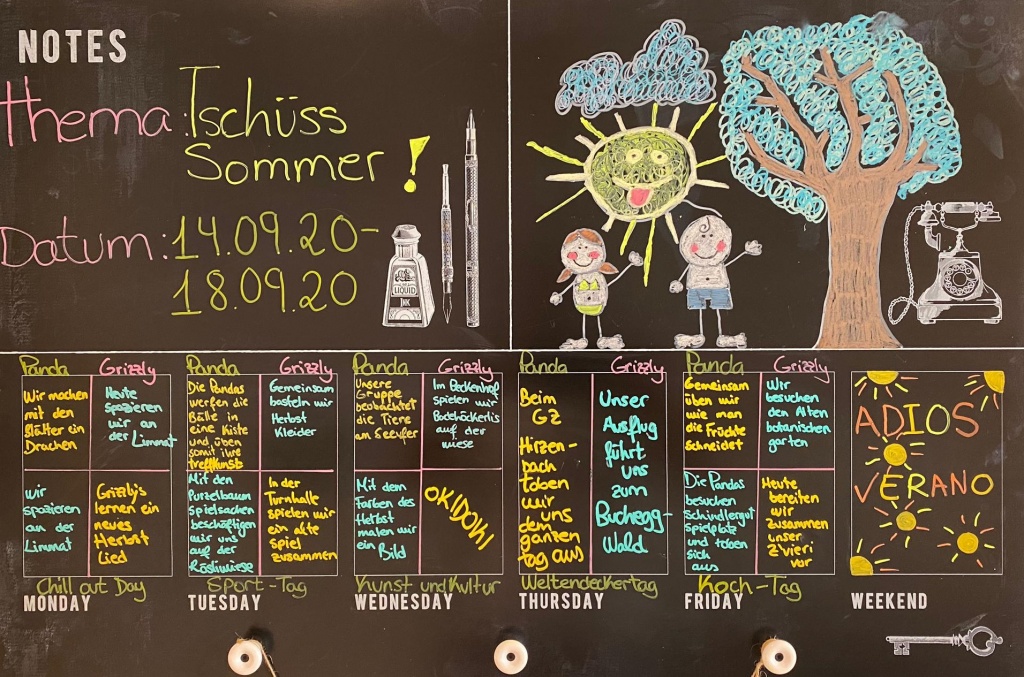 NOTES
Thema: Tschüss
Sommer!
Datum: 14.09.20-
18.09.20
LIQUID
INK
Panda
Grizzly
Wir machen
mit den
Blätter ein
Drachen
Heute
spazieren
wir an
der Limmat
wir
spazieren
an der
Limmat
Grizzly's
lernen ein
neues
Herbst
Lied
Chill out Day
MONDAY
Panda
Grizzly
Die Pandas
werfen die
Bälle in
eine Kiste
und üben
somit ihre
treffkunst
Gemeinsam
basteln wir
Herbst
Kleider
Mit den
Purzelbaum
Spielsachen
beschäftigen
wir uns
auf der
Rösliwiese
In der
Turnhalle
spielen wir
ein alte
spiel
zusammen
Sport-Tag
TUESDAY
Panda
Grizzly
Unsere
Gruppe
beobachtet
die Tiere
am Seeufer
Im Beckenhof
spielen wir
auf der
wiese
Mit dem
Farben des
Herbst
malen wir
ein Bild
OKIDOKI!
Kunst und Kultur
WEDNESDAY
Panda
Grizzly
Beim
GZ
Hirzen-
bach
toben
wir
uns
dem
ganzen
tag aus
Unser
Ausflug
führt
uns
zum
Buchegg-
Wald
Weltendeckertag
THURSDAY
Panda
Grizzly
Gemeinsam
üben wir
wie man
die Früchte
schneidet
Wir
besuchen
den Alten
botanischen
garten
Die Pandas
besuchen
Schindlergut
spielplatz
und toben
sich
aus
Heute
bereiten
wir
zusammen
unser
Z'vieri
vor
Koch-Tag
FRIDAY
ADIOS
VERANO
WEEKEND